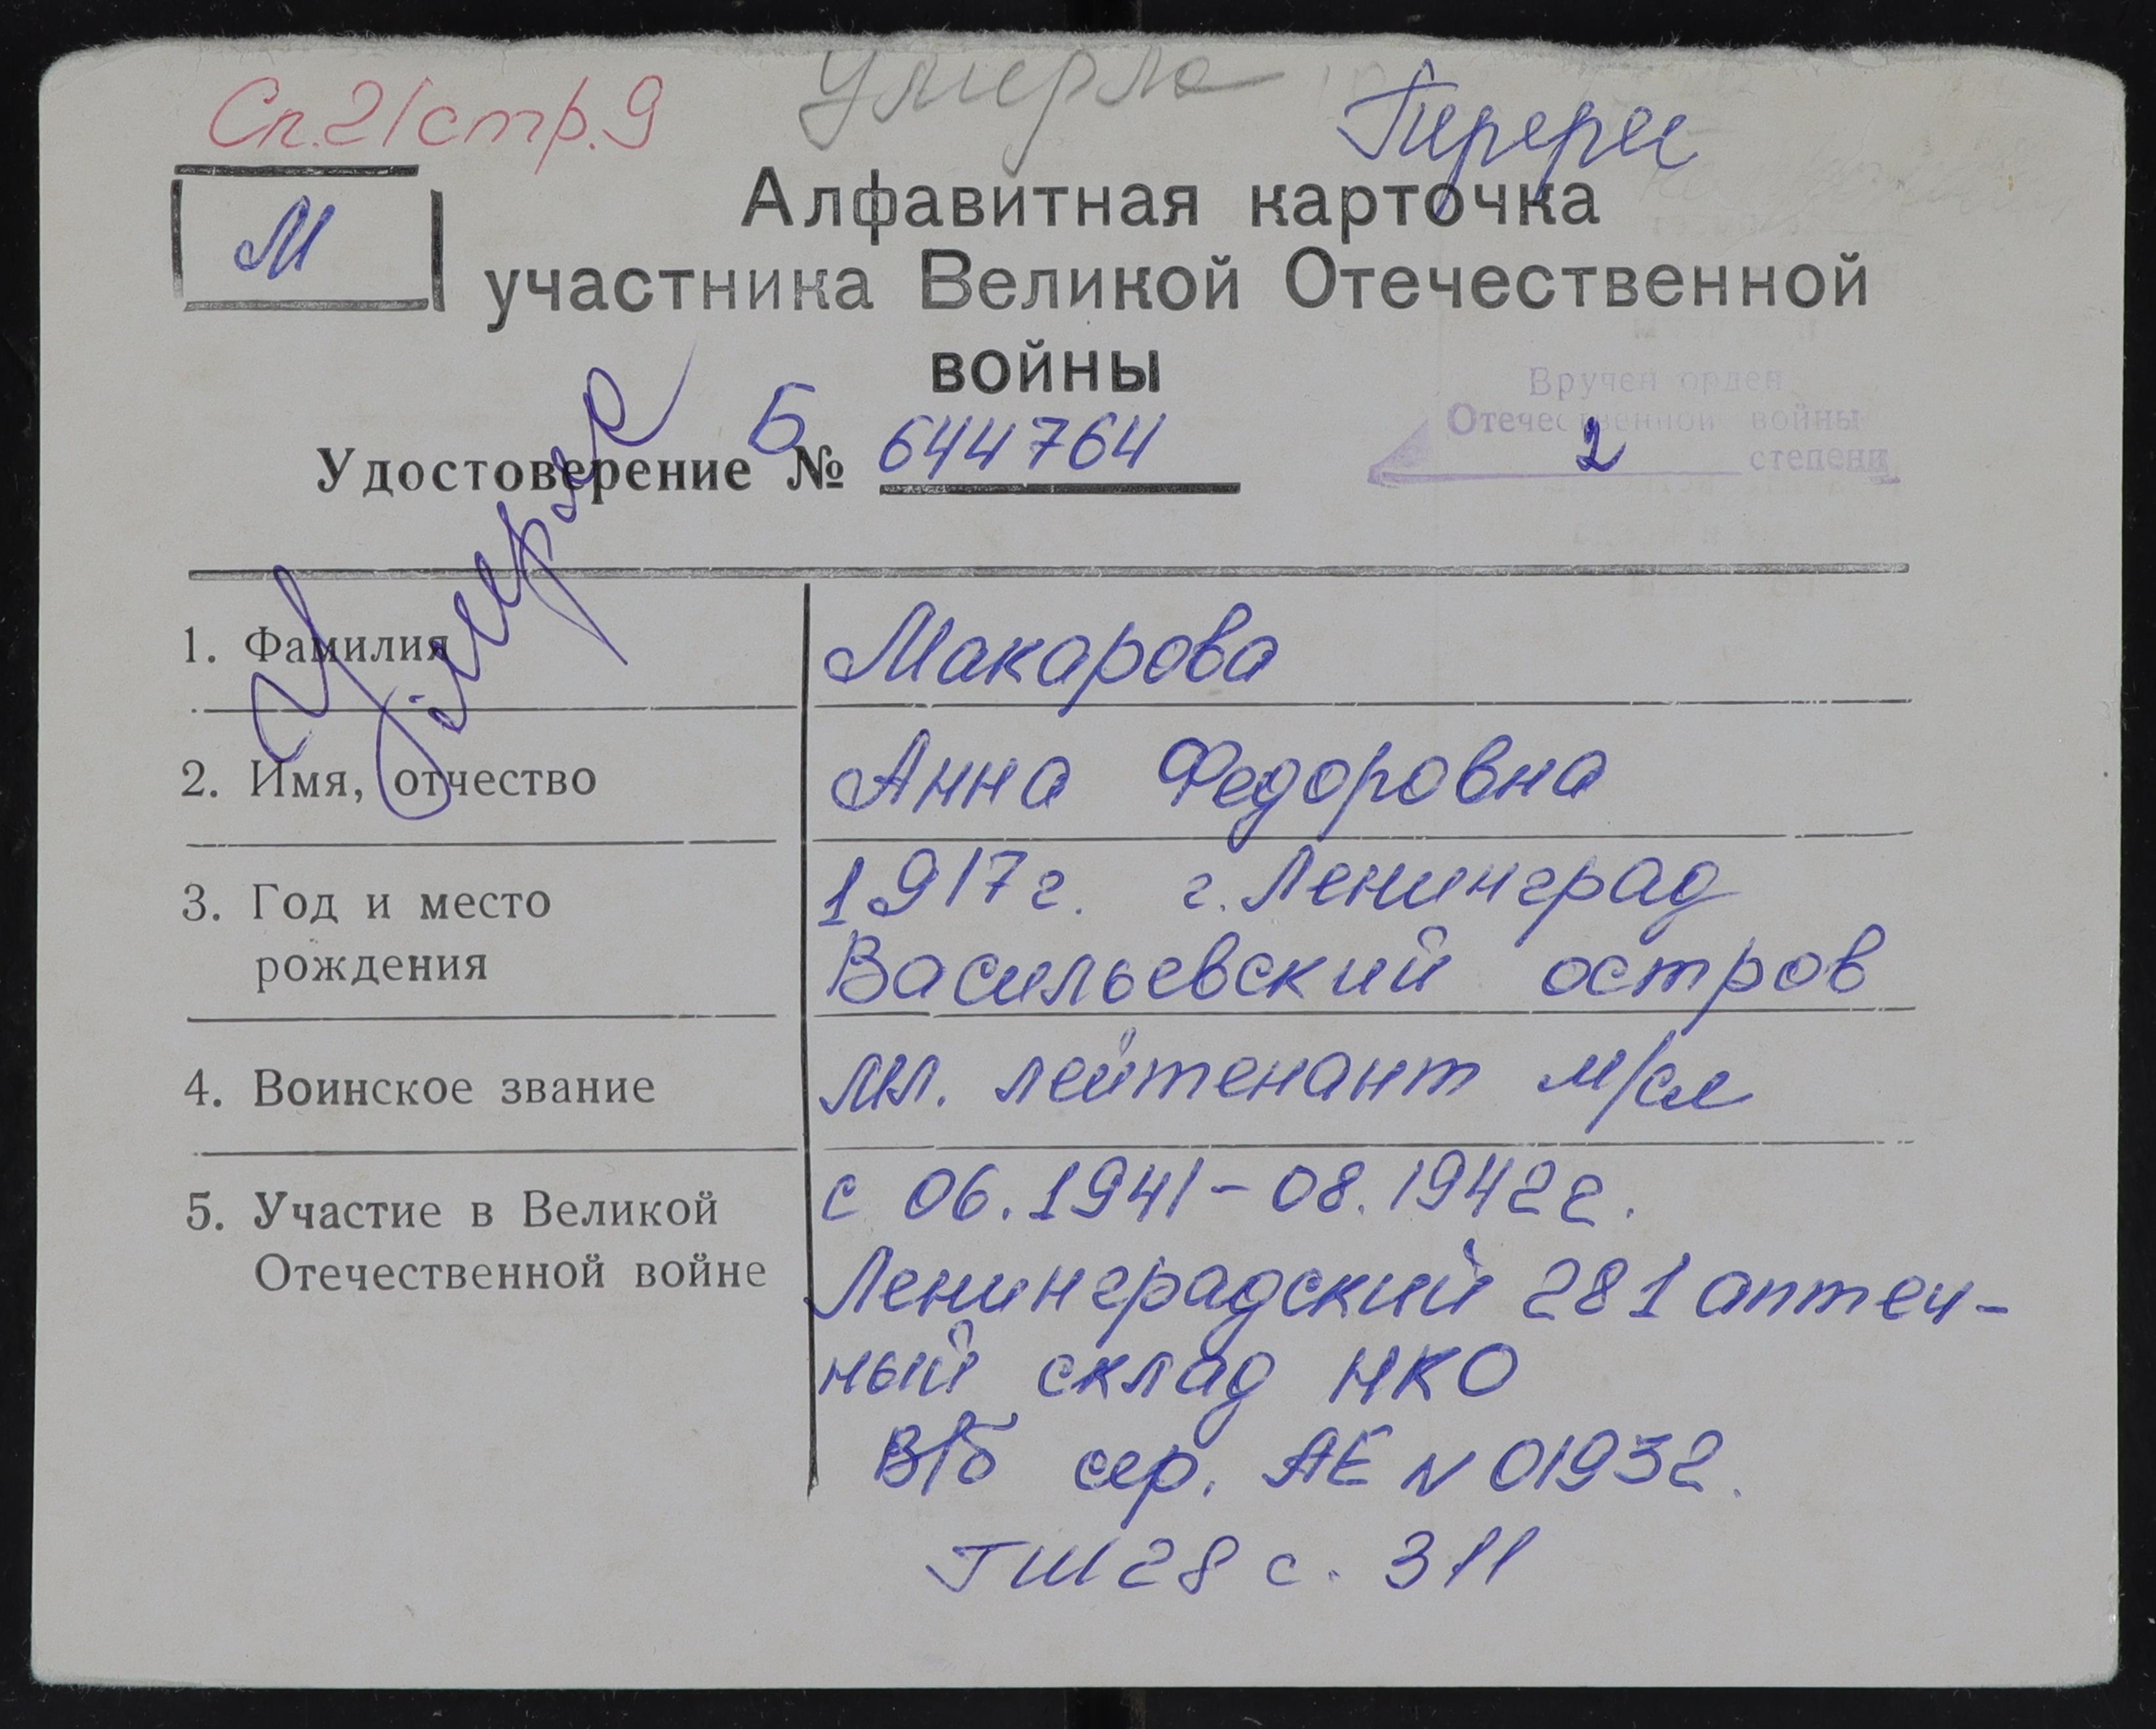 Сп.21стр.9
умерла
Перерег
М
Алфавитная карточка
участника Великой Отечественной
войны
Удостоверение Б № 644764
Вручен орден
Отечественной войны
2 степени
Умерла
1. Фамилия Макарова
2. Имя, отчество Анна Федоровна
3. Год и место 1917г. г. Ленинград
рождения Васильевский остров
4. Воинское звание мл. лейтенант м/сл
5. Участие в Великой с 06.1941-08.1942г.
Отечественной войне Ленинградский 281 аптеч-
ный склад НКО
В/б сер. АЕ N 01932.
ТШ 28 с. 311